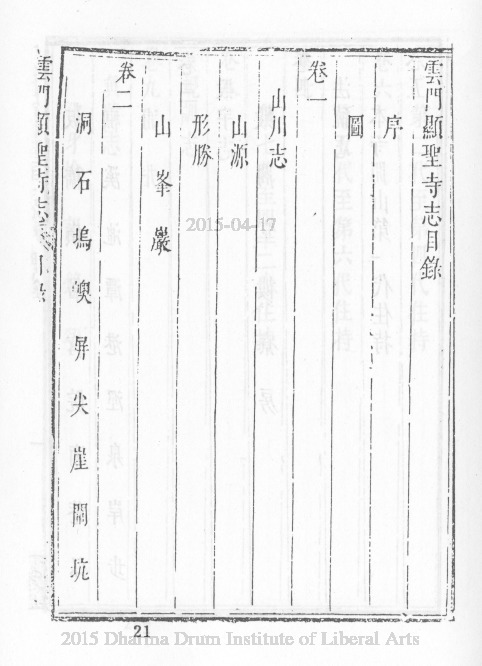 雲門顯聖寺志目錄
序
圖
卷一
山川志
山源
形勝
山峯巖
卷二
洞石塢嶴屏尖崖關坑
雲門顯聖寺志
2015-04-17
21
2015 Dharma Drum Institute of Liberal Arts